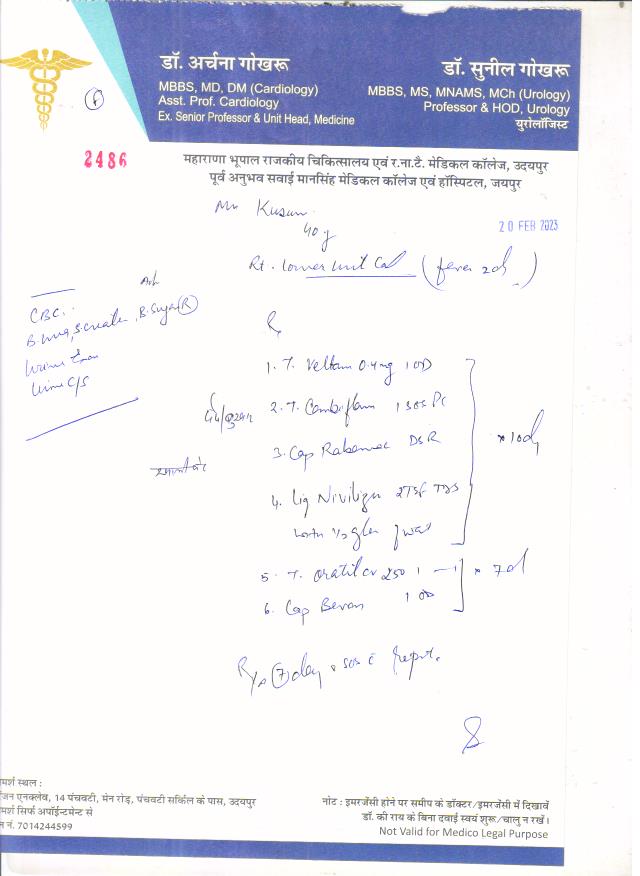 डॉ. अर्चना गोखरू
MBBS, MD, DM (Cardiology)
Asst. Prof. Cardiology
Ex. Senior Professor & Unit Head, Medicine
डॉ. सुनील गोखरू
MBBS, MS, MNAMS, MCh (Urology)
Professor & HOD, Urology
युरोलॉजिस्ट
2486
महाराणा भूपाल राजकीय चिकित्सालय एवं र.ना.टै. मेडिकल कॉलेज, उदयपुर
पूर्व अनुभव सवाई मानसिंह मेडिकल कॉलेज एवं हॉस्पिटल, जयपुर
Kusum
40 y
20 FEB 2023
Rt. Lower Unit Cal (fever 2d)
CBC
B. Urea, S. Creatin, B. Sugar (R)
Urine
Urine C/S
R
1. T. Veltam 0.4mg 1 OD
2. T. Combiflam 1 SOS PC
दर्द/बुखार
3. Cap DSR
x 10d
4. Liq 2TSF TDS
with 1/2 glass
5. T. Oratil CV 250 1 — 1
x 7d
6. Cap 1 OD
(7) day SOS c report.
मर्श स्थल :
जन एनक्लेव, 14 पंचवटी, मेन रोड़, पंचवटी सर्किल के पास, उदयपुर
मर्श सिर्फ अपॉईन्टमेन्ट से
न नं. 7014244599
नोट : इमरजेंसी होने पर समीप के डॉक्टर/इमरजेंसी में दिखावें
डॉ. की राय के बिना दवाई स्वयं शुरू/चालु न रखें।
Not Valid for Medico Legal Purpose